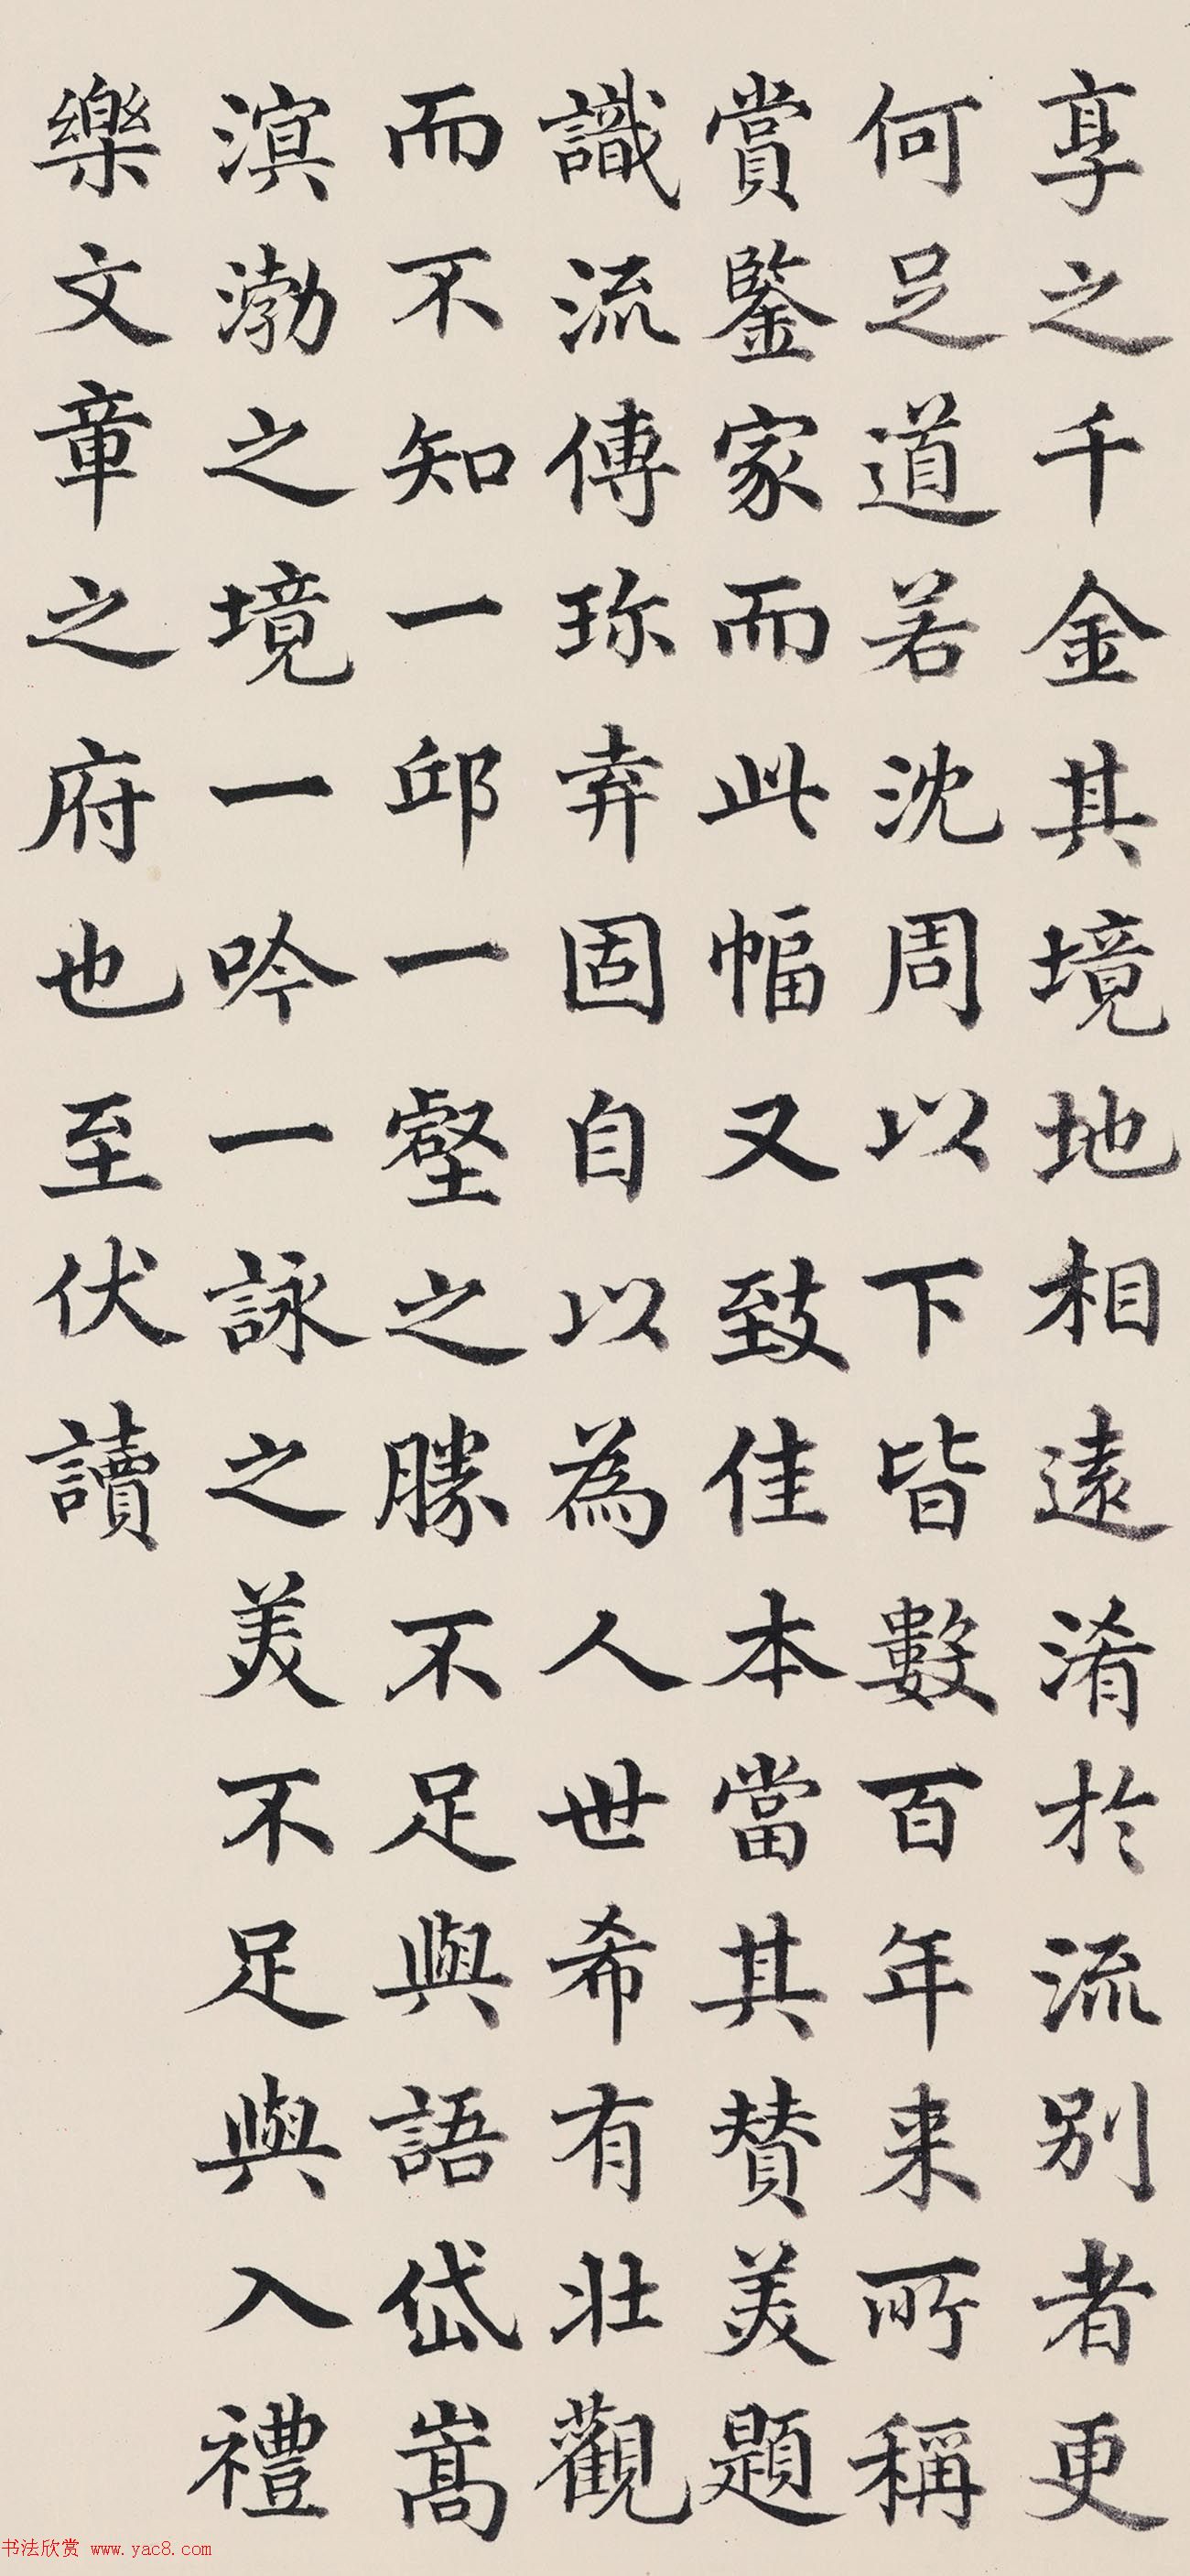 享之千金其境地相遠淆於流别者更
何足道若沈周以下皆數百年来所稱
賞鑒家而此幅又致佳本當其賛美題
識流傳珎幸固自以為人世希有壯觀
而不知一邱一壑之勝不足與語岱嵩
溟渤之境一吟一詠之美不足與入禮
樂文章之府也至伏讀
书法欣赏 www.yac8.com